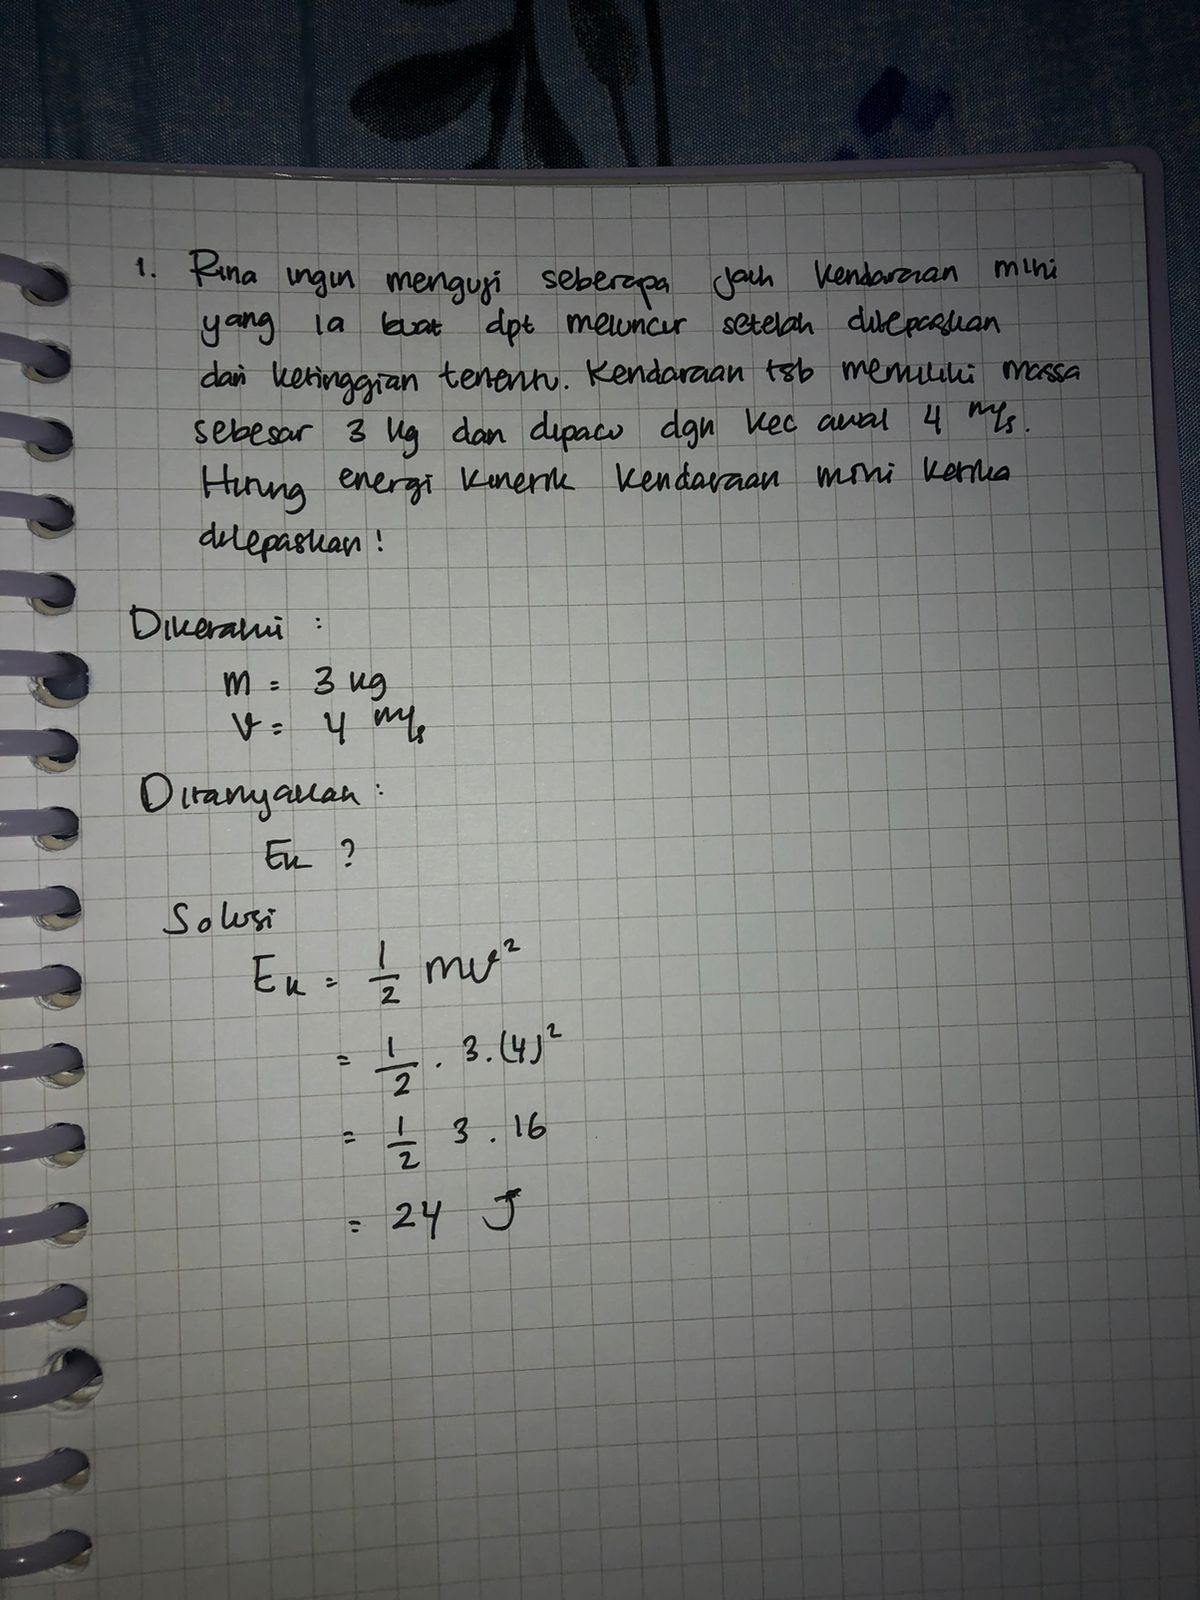 1. Rina ingin menguji seberapa jauh kendaraan mini
yang ia buat dpt meluncur setelah dilepaskan
dari ketinggian tertentu. Kendaraan tsb memiliki massa
sebesar 3 kg dan dipacu dgn kec awal 4 m/s.
Hitung energi kinetik kendaraan mini ketika
dilepaskan!
Diketahui :
m = 3 kg
v = 4 m/s
Ditanyakan :
Ek ?
Solusi
Ek = 1/2 mv²
= 1/2 . 3.(4)²
= 1/2 3 . 16
= 24 J